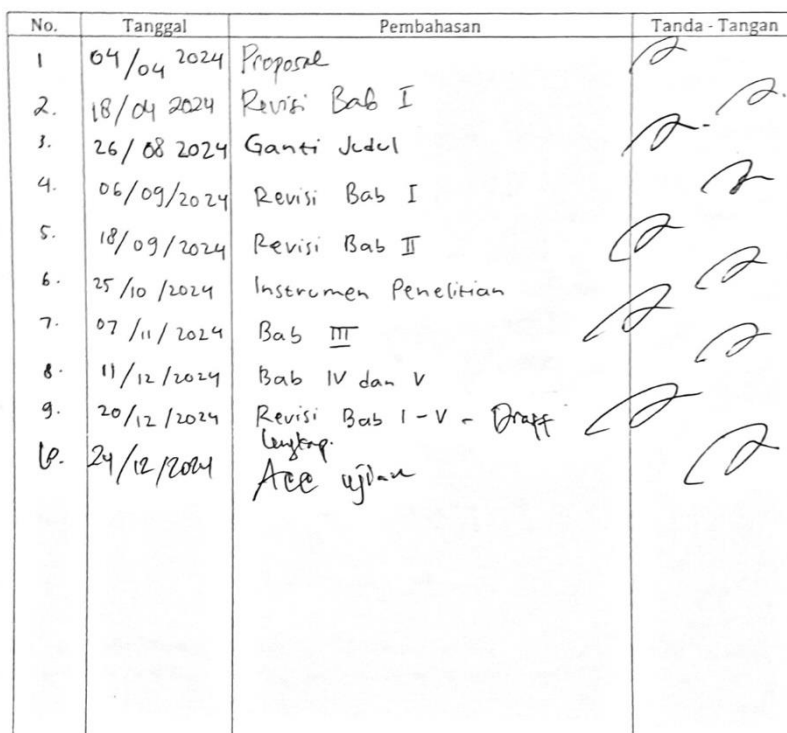 No. Tanggal Pembahasan Tanda - Tangan
1 04/04 2024 Proposal
2. 18/04 2024 Revisi Bab I
3. 26/08 2024 Ganti Judul
4. 06/09/2024 Revisi Bab I
5. 18/09/2024 Revisi Bab II
6. 25/10/2024 Instrumen Penelitian
7. 07/11/2024 Bab III
8. 11/12/2024 Bab IV dan V
9. 20/12/2024 Revisi Bab I-V - Draft
lengkap.
10. 24/12/2024 Acc ujian